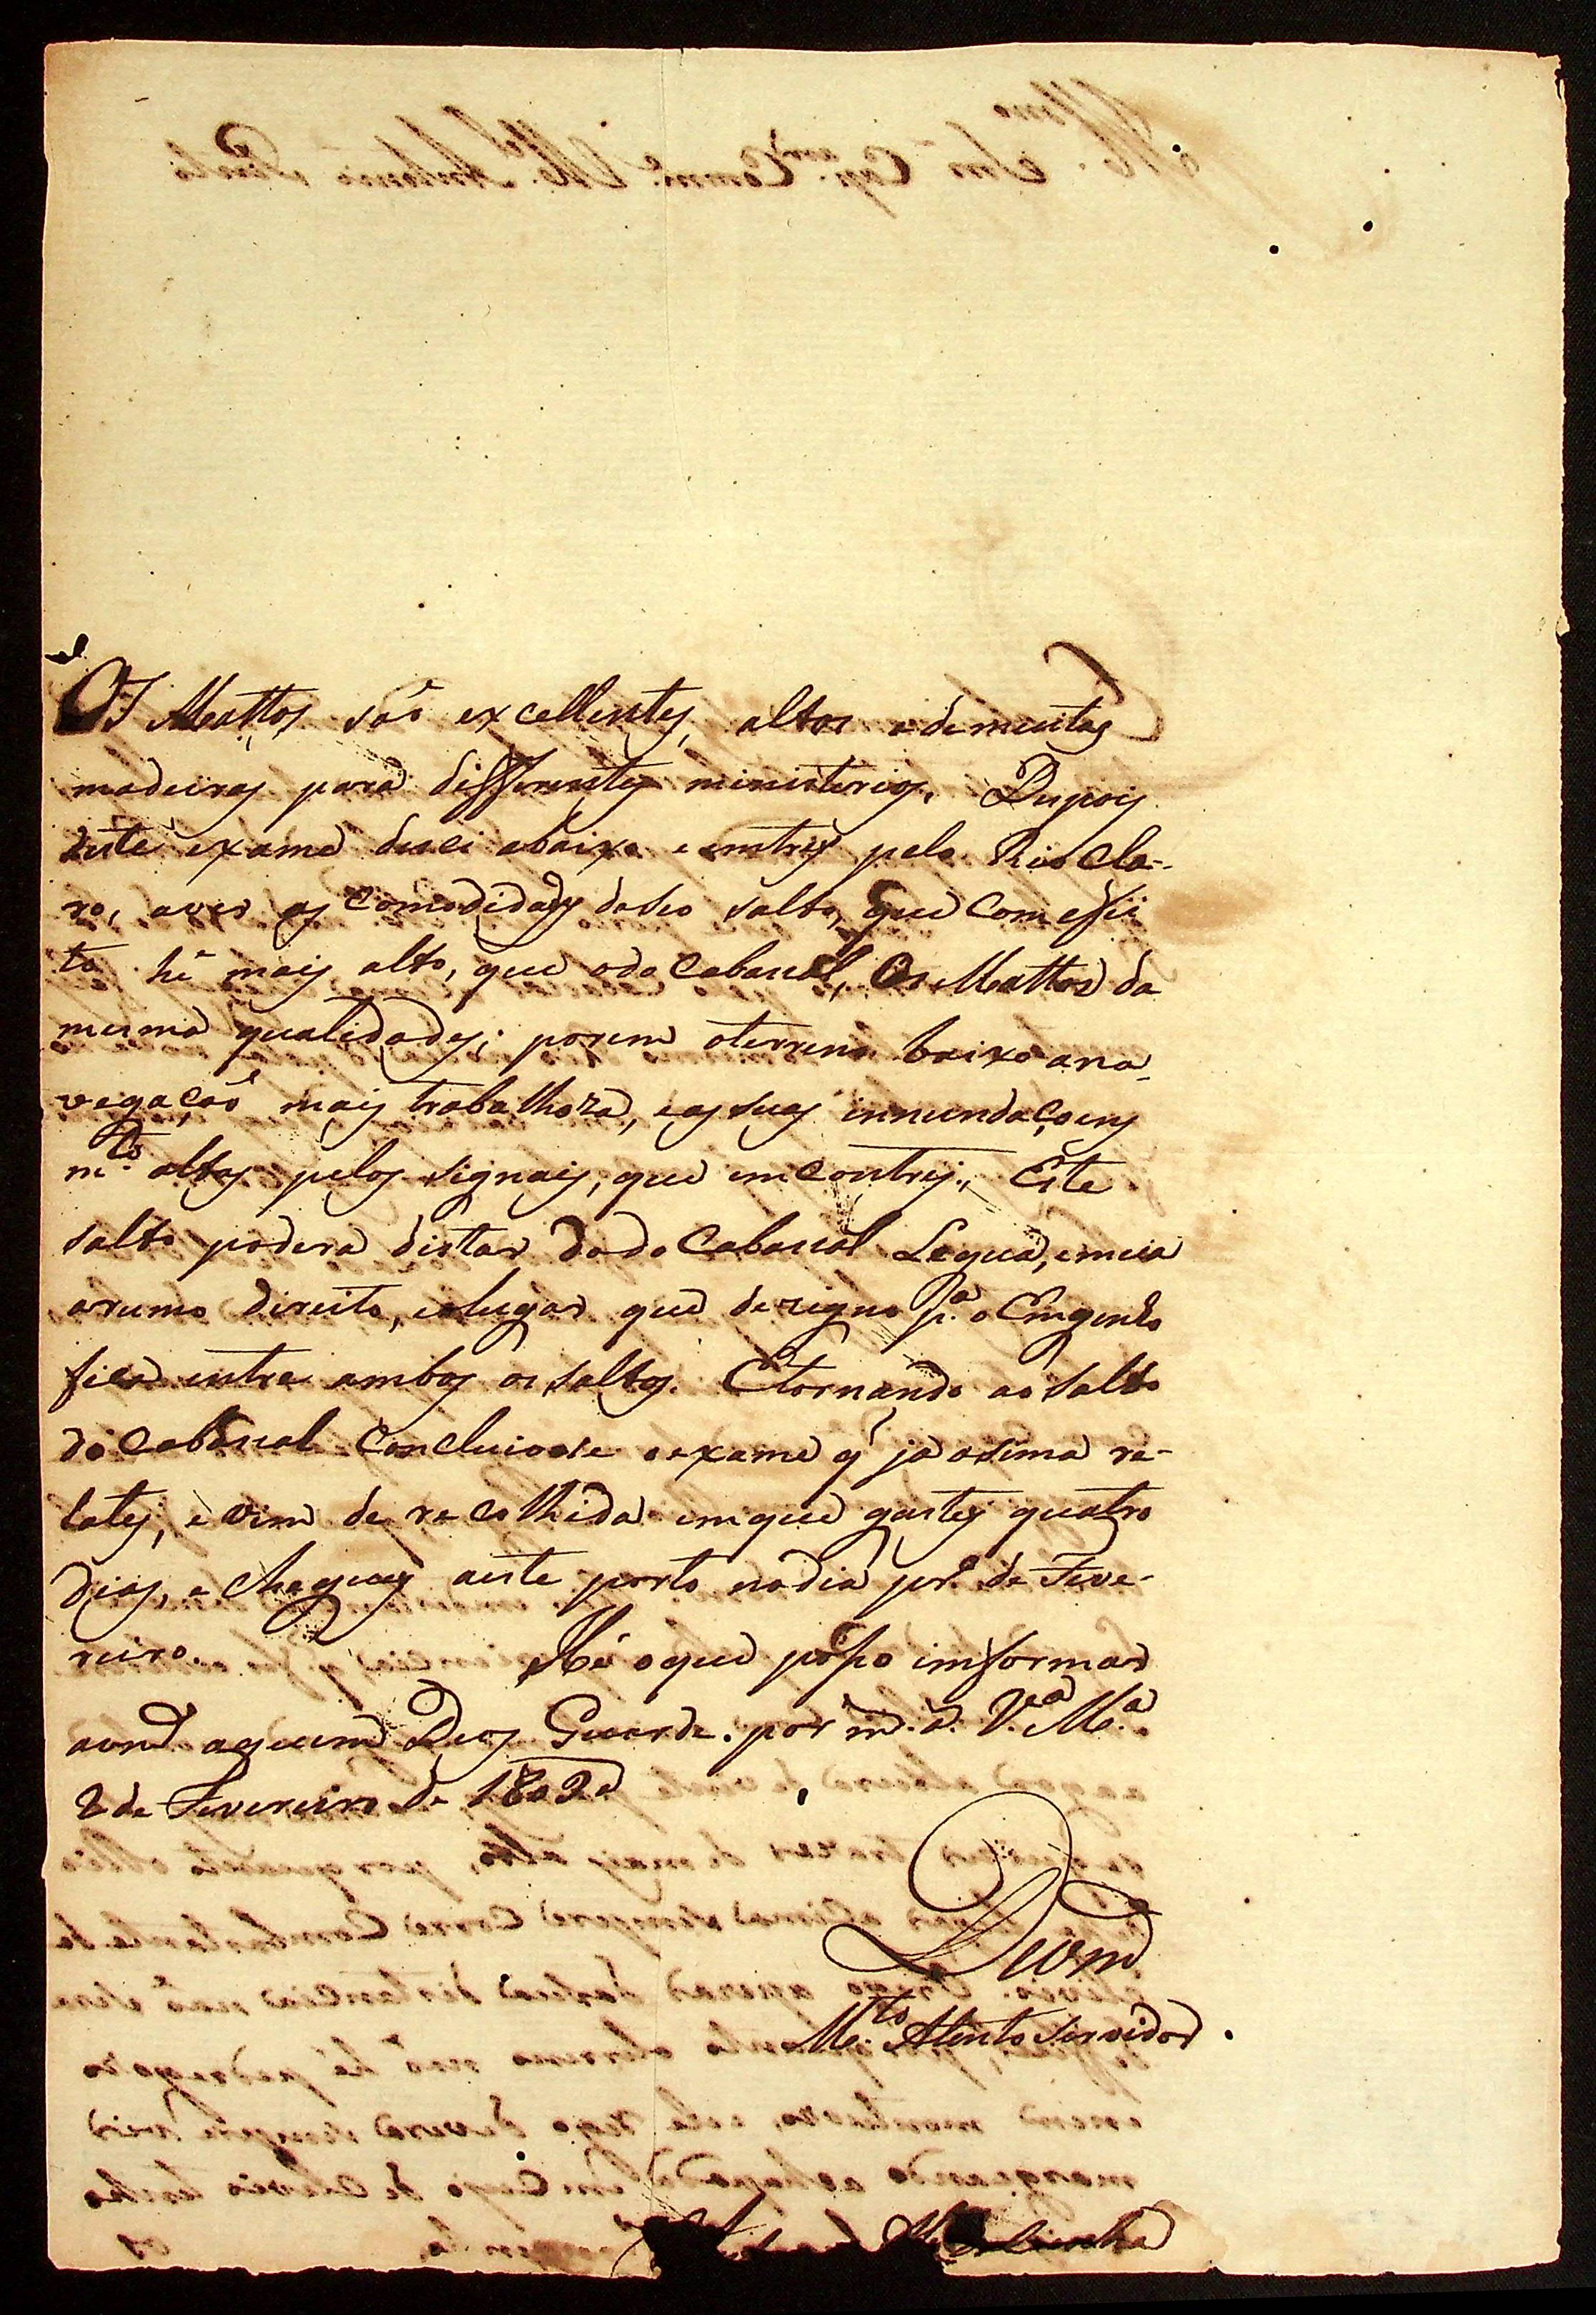 Os Mattos são excellentes, altos e de muitas
madeiras para differentes ministerios. Depois
deste exame desci abaixo e entrei pelo Rio Cla-
ro, aver as comodidades do seo salto, que com efei
to hé mais alto, que o do Cabaçal, Os Mattos da
mesma qualidades; porem oterreno baixo ana-
vegação mais trabalhoza, e as suas innundaçoens
mto. altas pelos signais, que emContrei. Este
salto poderá distar do do Cabaçal Legua, emeia
arumo direito, eolugar que dezigno pa. o Engenho
fica entre ambos os saltos. E tornando ao salto
do Cabaçal Concluiose o exame q' já asima re-
latei, e vim de recolhida emque gastei quatro
dias, e cheguei aeste porto nodia pro. de Feve-
reiro. Hé oque posso imformar
avmce aquem Deos Guarde. por m. a. Va. Ma.
2 de Fevereiro de 1802
De vmce
Mto. Atento Servidor.